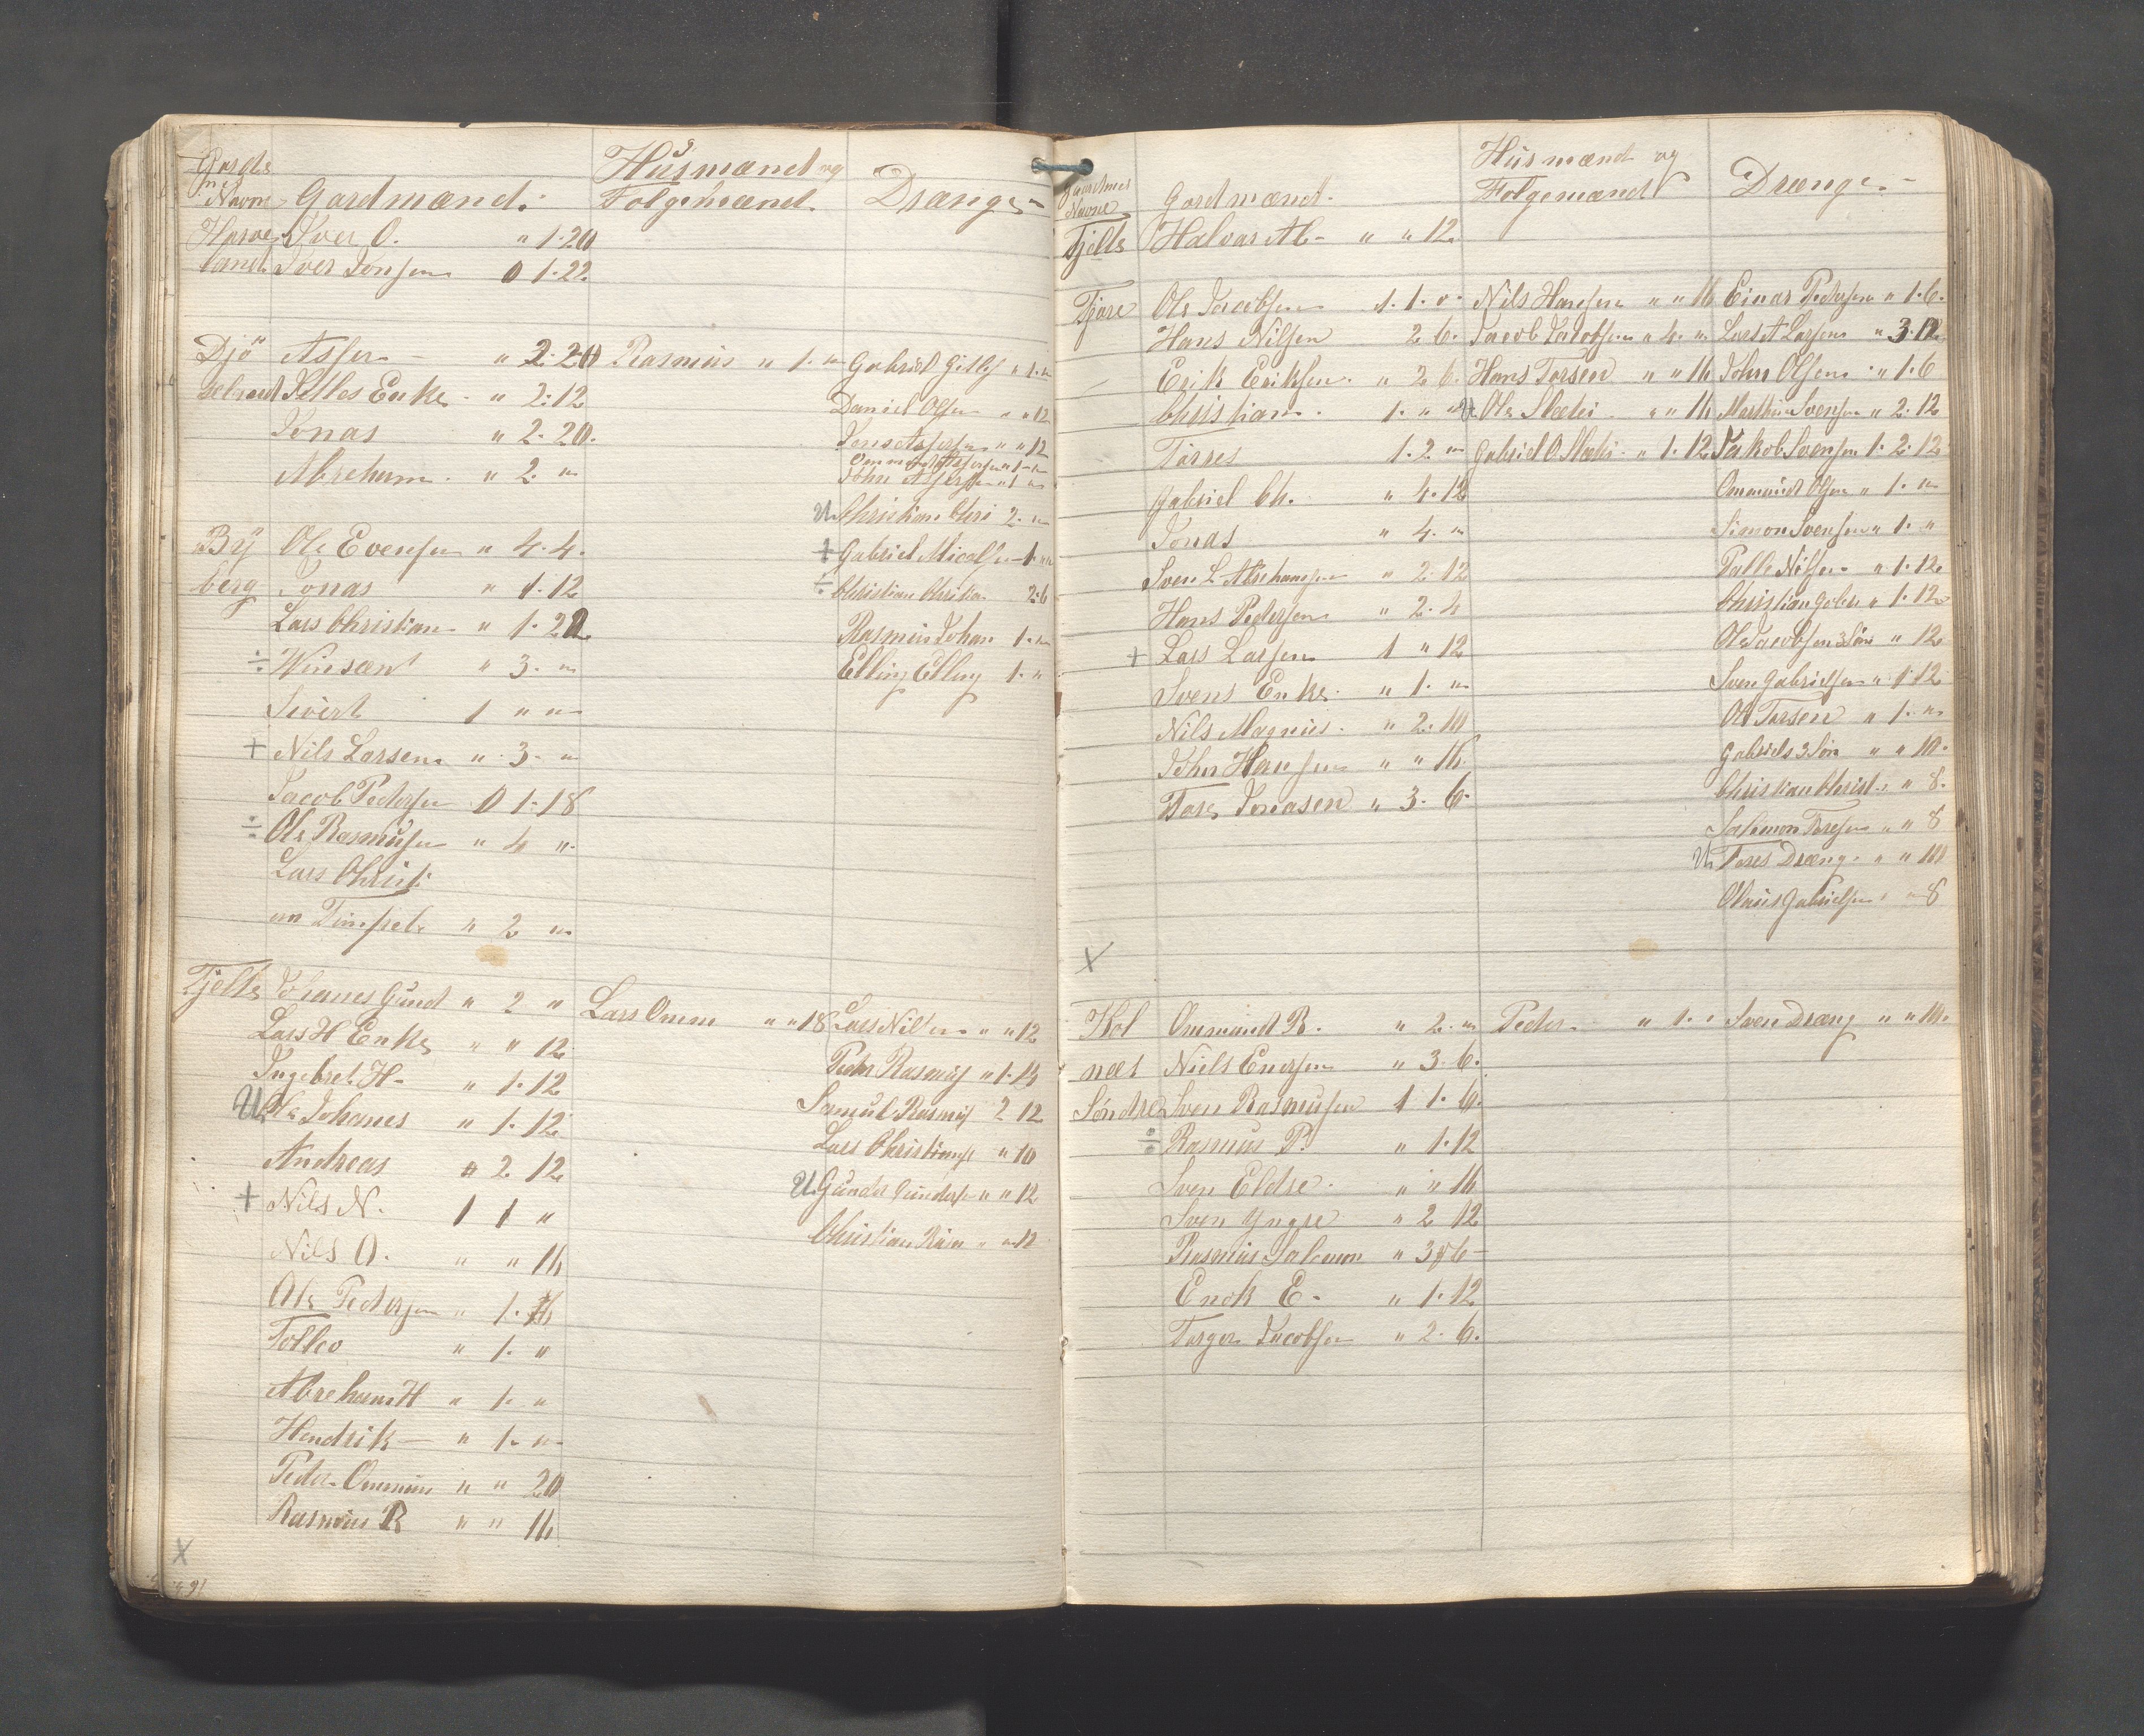 Gards
Navne Gardmænd. Husmænd og Folgemænd. Drænge
Haave Iver O. " 1. 20
land Iver Jonsen 0 1. 22
Djö Asser " 2. 20 Rasmus " 1. " Gabriel " 1. "
Enke " 2. 12 Daniel Olsen " " 12
Jonas " 2. 20. " " 12
Abreham " 2. "
John
U Christian Chri 2. "
By Ole Evensen " 4. 4. + Gabriel Micalsen 1. "
berg Jonas " 1. 12 ÷ Christian Christian 2. 6
Lars Christian " 1. 22 Rasmus Johan 1. "
÷ Winsænt " 3. " Elling Elling 1. "
Sivert 1 " "
+ Nils Larsen " 3. "
Jacob Pedersen 0 1. 18
÷ Ole Rasmusen " 4 "
Lars Christi
an " 2 "
Tjelte Johanes Gund " 2 " Lars Omm " " 18 Lars Nil " " 12
Lars H Enke " " 12 Peder Rasmus " 1.
Ingebret H " 1. 12 Samuel Rasmus 2 12
U Ole Johanes " 1. 12 Lars Christians " 10
Andreas " 2 12 U Gunder Gunders " " 12
+ Nils N. 1 1 " Christian Ras " " 12
Nils O. " " 16
Ole Pedersen " 1. 16
Tollev " 1. "
Abreham H " 1. "
Hendrik " 1. "
Peder Ommun " " 20
Rasmus R " " 16
X
Navne Gardmænd. Husmænd og Folgemænd Drænge
Tjelte Halvar Ab " " 12
Tjore Ole Jacobsen 1. 1. 0. Nils Hansen " " 16 Einar Pedersen " 1. 6.
Hans Nilsen 2 6. Jacob Jacobsen " 4. " Lars A Larsen " 3. 12
Erik Eriksen " 2 6. Hans Torsen " " 16 John Olsen " 1. 6
Christian 1. " " Ole " " 16 Svensen " 2. 12
Torres 1. 2. " Gabriel O " 1. 12 Jakob Svensen 1. 2. 12
Gabriel Ch. " 4. 12 Ommund Olsen " 1. "
Jonas " 4. " Simon Svensen " 1. "
Sven L Abrehamsen " 2. 12 Palle Nilsen " 1. 12
Hans Pedersen " 2. 4 Christian Gabri " 1. 12
+ Lars Larsen 1 " 12 Ole Jacobsen 3 Søn " 12
Svens Enke " 1. " Sven Gabrielsen " 1. 12
Nils Magnus " 2. 10 Ole Torsen " 1. "
John Hansen " " 16 Gabriels 3 Søn " " 10.
Tore Jonasen " 3. 6. Christian Christ " 8.
Salemon Toresen " " 8
U Tores Dræng " " 10
Olaus Gabrielsen " 8
X
Kol Ommund B. " 2. " Peder " 1. " Sven Dræng " " 10.
næs Niels Enersen " 3. 6.
Søndre Sven Rasmusen 1 1. 6.
÷ Rasmus P. " 1. 12
Sven Eldre " " 16
Sven Yngre " 2 12
Rasmus Salemon " 3 6
Enok E. " 1. 12
Torger Jacobsen " 2. 6.